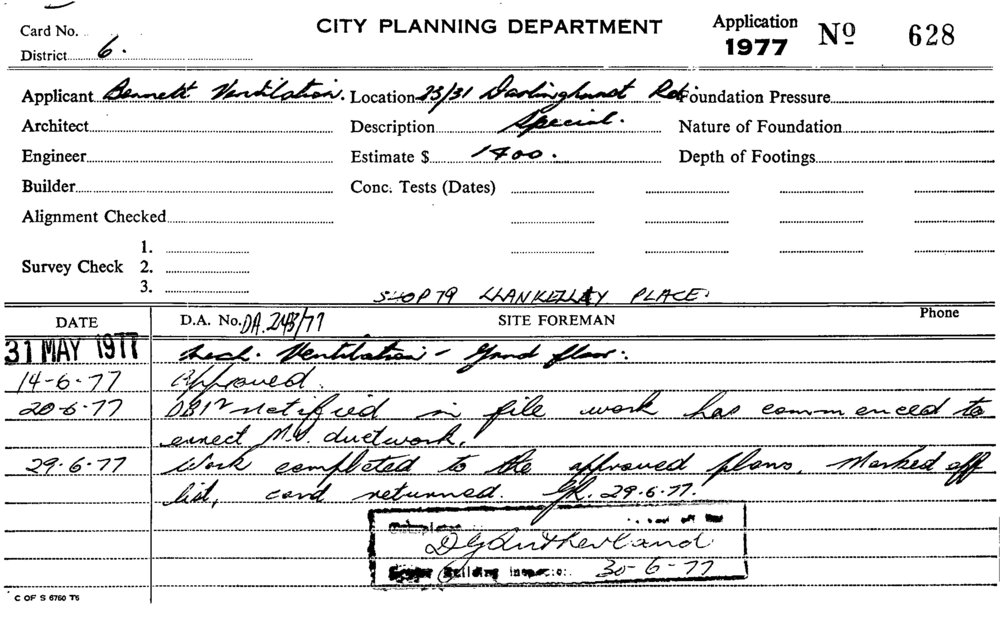 Card No.
CITY PLANNING DEPARTMENT
Application 1977 Nº 628
District 6.
Applicant Bennett Ventilation. Location 23/31 Darlinghurst Rd. Foundation Pressure
Architect Description Special. Nature of Foundation
Engineer Estimate $ 1400. Depth of Footings
Builder Conc. Tests (Dates)
Alignment Checked
1.
Survey Check 2.
3.
SHOP 79 LLANKELLEY PLACE.
DATE D.A. No. DA. 243/77 SITE FOREMAN Phone
31 MAY 1977 Mech. Ventilation - Grnd floor.
14-6-77 Approved.
20-6-77 notified in file work has commenced to
errect M.V. ductwork.
29.6.77 Work completed to the approved plans. Marked off
list, card returned. 29.6.77.
D G Sutherland
Building Inspector 30-6-77
C OF S 6760 T6